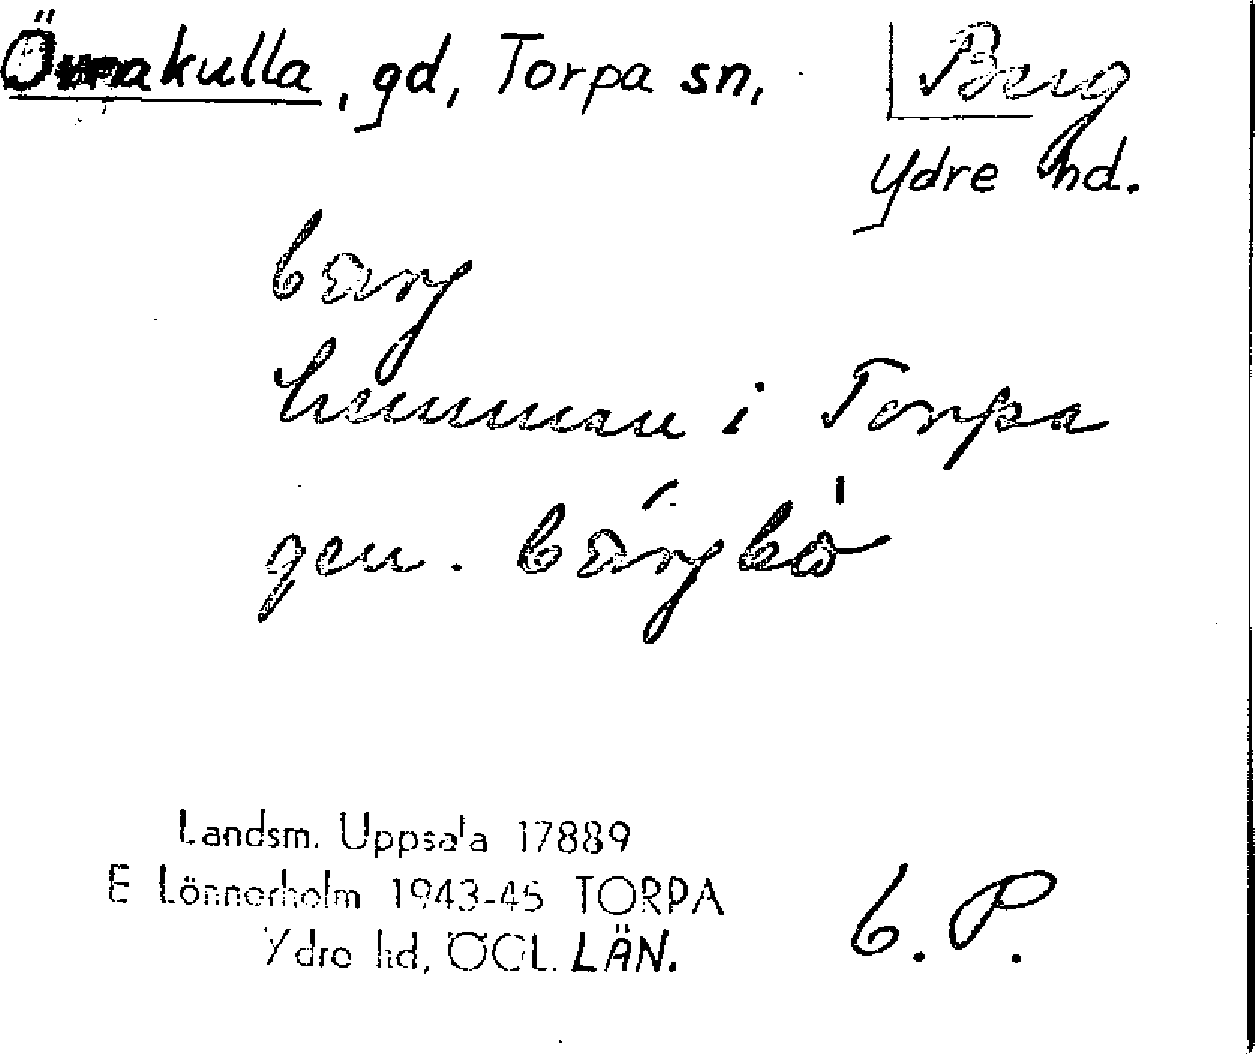 Övrakulla, gd, Torpa sn, Berg
Ydre hd.
bärj
hemman i Torpa
gen. bärjbo
Landsm. Uppsala 17889
E Lönnerholm 1943-45 TORPA
Ydre hd, ÖGL. LÄN.
b. P.